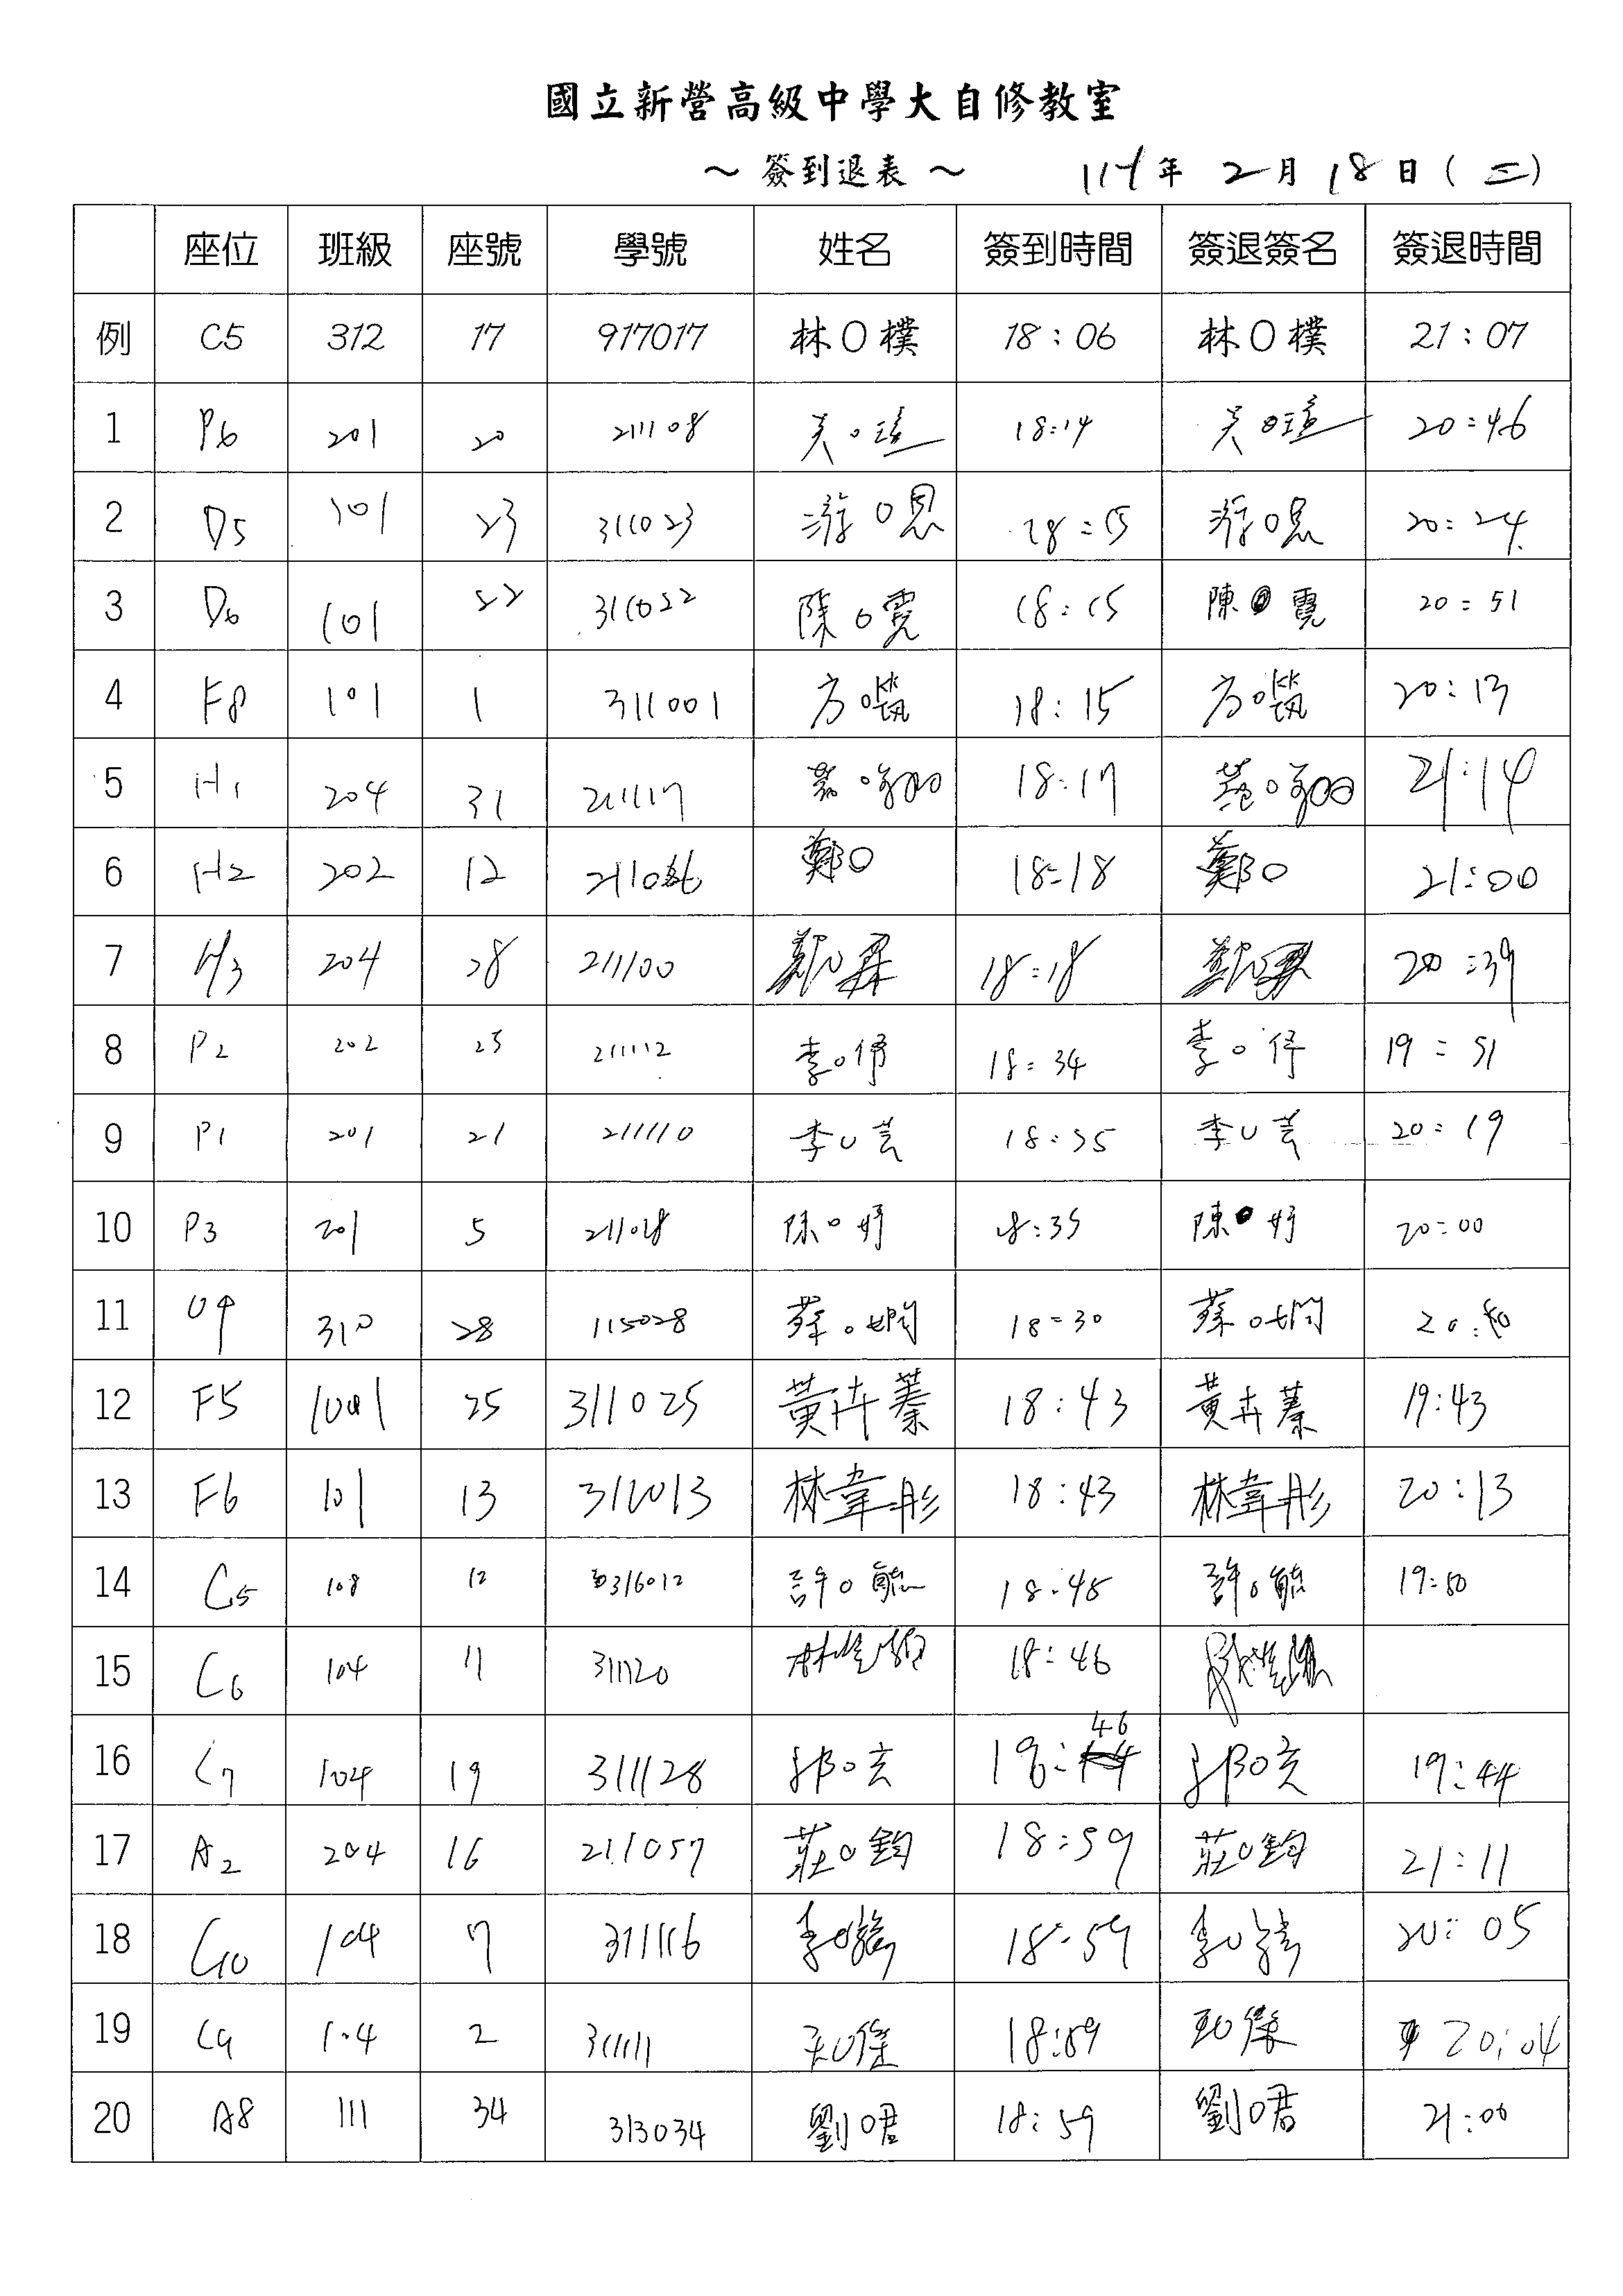 國立新營高級中學大自修教室
～ 簽到退表 ～ 114年 2月 18日 (二)
座位 班級 座號 學號 姓名 簽到時間 簽退簽名 簽退時間
例 C5 312 17 917017 林O樸 18:06 林O樸 21:07
1 P6 201 20 211108 18:14 20:46
2 D5 101 23 311023 游O恩 18:15 游O恩 20:24
3 D6 101 22 311022 陳O霓 18:15 陳O霓 20:51
4 F8 101 1 311001 方O 18:15 方O 20:13
5 H1 204 31 211117 18:17 21:14
6 H2 202 12 鄭O 18:18 鄭O 21:00
7 H3 204 28 211100 鄭O 18:18 20:39
8 P2 202 25 211112 李O伃 18:34 李O伃 19:51
9 P1 201 21 211110 李O芸 18:35 李O芸 20:19
10 P3 201 5 211028 陳O妤 18:35 陳O妤 20:00
11 U9 310 28 115028 蔡O嫺 18:30 蔡O嫺
12 F5 25 311025 黃卉蓁 18:43 黃卉蓁 19:43
13 F6 101 13 林韋彤 18:43 林韋彤 20:13
14 C5 108 12 316012 許O毓 18:45 許O毓 19:50
15 C6 104 11 311120 18:46
16 C7 104 19 311128 18:46 19:44
17 A2 204 16 211057 莊O鈞 18:59 莊O鈞 21:11
18 C10 104 7 311116 李O 18:59 李O 20:05
19 C9 104 2 311111 18:59 20:04
20 A8 111 34 313034 劉O君 18:59 劉O君 21:00